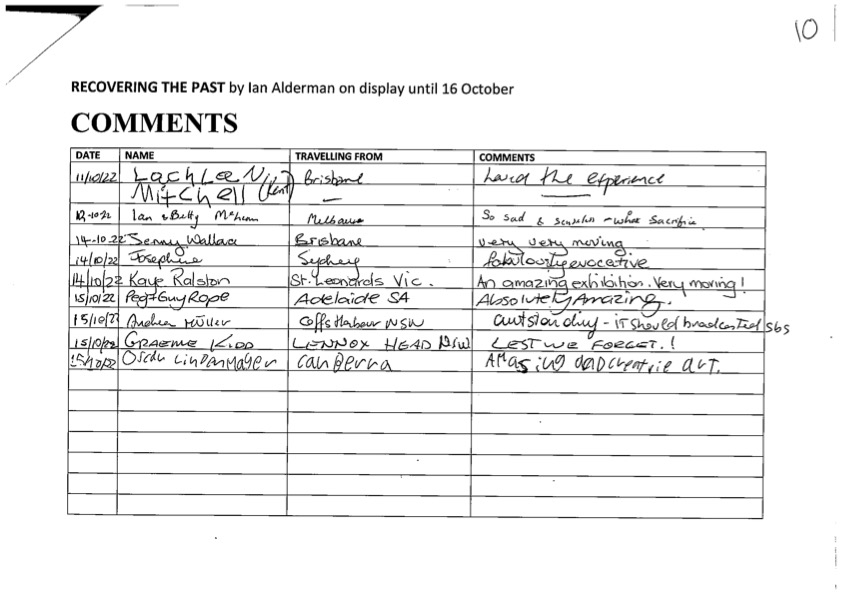 10
RECOVERING THE PAST by Ian Alderman on display until 16 October
COMMENTS
DATE NAME TRAVELLING FROM COMMENTS
11/10/22 Brisbane the experience
Mitchell (Kent)
12-10-22 Ian & Betty Melbourne So sad & - what sacrifice
14-10.22 Jenny Wallace Brisbane very very moving
14/10/22 Josephine Sydney fabulously evocative
14/10/22 Kaye Ralston St. Leonards Vic. An amazing exhibition. Very moving!
15/10/22 Peg+Guy Rope Adelaide SA Absolutely Amazing.
15/10/22 Andrea Müller Coffs Harbour NSW - it should SBS
15/10/22 GRAEME KIDD LENNOX HEAD NSW LEST WE FORGET.!
15/10/22 Oscar Lindenmayer Canberra Amasing art.